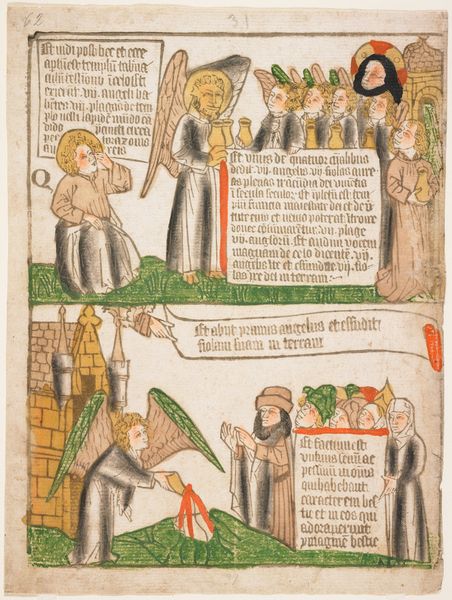 62 31
Et vidi post hec et ecce
aptu est templu tabna
culi testionij i celo et
exierut vij angeli ha
betes vij plagas de tem
plo vesti lapide mudo ca
dido
Q
Et unus de quatuor aialibus
dedit vij angelis vij fiolas aure
as plenas iracudia dei viuetis
i secula seculor Et ipletu est tem
plu fumo a maiestate dei et de v
tute eius et nemo poterat itroire
donec cosumaretur vij plage
vij angelor Et audiui vocem
magnam de celo dicente vij
angelis ite et effundite vij fio
las ire dei in terram
Et abiit primus angelus et effudit
fiolam suam in terram
Et factum est
vulnus seuu ac
pessimu in omes
qui habebant
caracterem bes
tie et in eos qui
adorauerunt
ymagine bestie